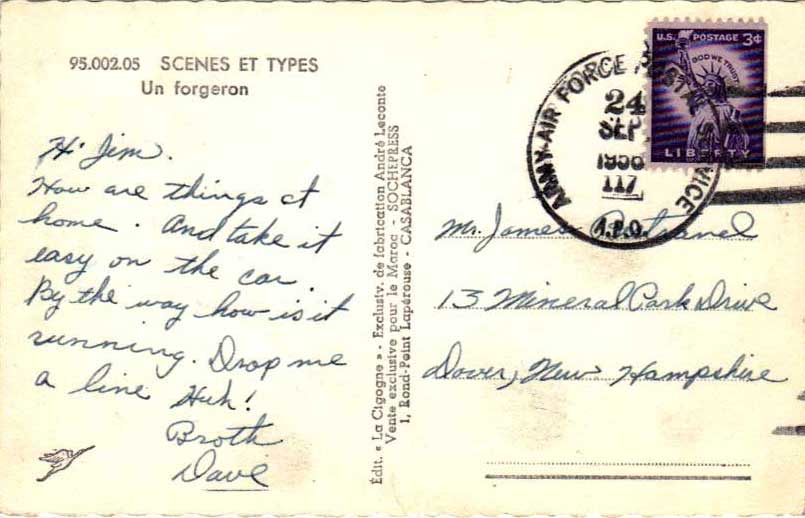 95.002.05 SCENES ET TYPES
Un forgeron
Hi Jim.
How are things at
home. And take it
easy on the car.
By the way how is it
running. Drop me
a line Huh!
Broth
Dave
Édit. « La Cigogne » - Exclusiv. de fabrication André Leconte
Vente exclusive pour le Maroc - SOCHEPRESS
1, Rond-Point Lapérouse - CASABLANCA
U.S. POSTAGE 3¢
IN GOD WE TRUST
LIBERTY
ARMY-AIR FORCE POSTAL SERVICE
24
SEP
1956
117
A.P.O.
Mr. James
13 Mineral Park Drive
Dover, New Hampshire